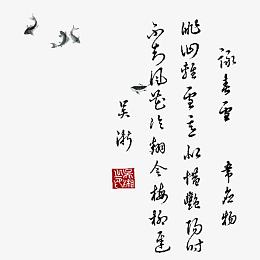 詠春雪 韋應物
裴回輕雪意似惜艷陽時
不知風花冷翻令梅柳遲
吳漸